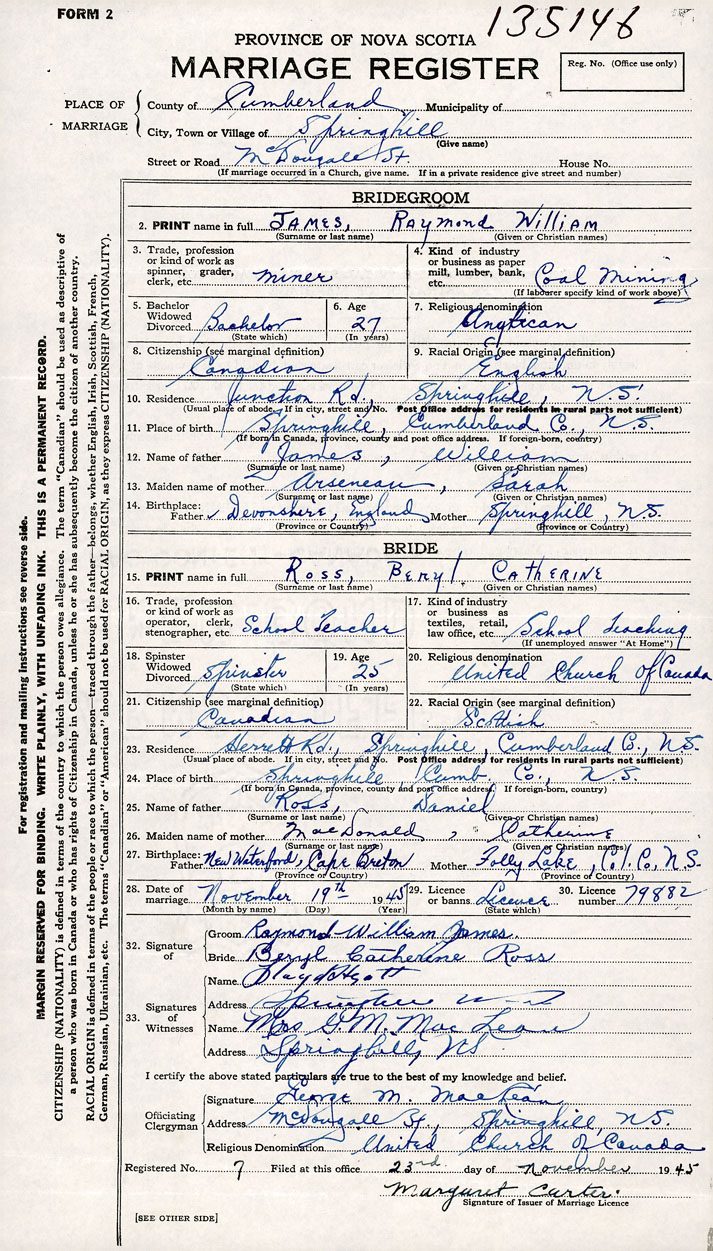 FORM 2
135146
PROVINCE OF NOVA SCOTIA
MARRIAGE REGISTER
Reg. No. (Office use only)
PLACE OF MARRIAGE
County of Cumberland Municipality of
City, Town or Village of Springhill
(Give name)
Street or Road McDougall St. House No.
(If marriage occurred in a Church, give name. If in a private residence give street and number)
BRIDEGROOM
2. PRINT name in full JAMES, Raymond William
(Surname or last name) (Given or Christian names)
3. Trade, profession or kind of work as spinner, grader, clerk, etc. miner
4. Kind of industry or business as paper mill, lumber, bank, etc. Coal Mining
(If labourer specify kind of work above)
5. Bachelor Widowed Divorced Bachelor
(State which)
6. Age 27
(In years)
7. Religious denomination Anglican
8. Citizenship (see marginal definition) Canadian
9. Racial Origin (see marginal definition) English
10. Residence Junction Rd., Springhill, N.S.
(Usual place of abode. If in city, street and No. Post Office address for residents in rural parts not sufficient)
11. Place of birth Springhill, Cumberland Co., N.S.
(If born in Canada, province, county and post office address. If foreign-born, country)
12. Name of father James, William
(Surname or last name) (Given or Christian names)
13. Maiden name of mother Arseneau, Sarah
(Surname or last name) (Given or Christian names)
14. Birthplace: Father Devonshire, England Mother Springhill, N.S.
(Province or Country) (Province or Country)
BRIDE
15. PRINT name in full Ross, Beryl Catherine
(Surname or last name) (Given or Christian names)
16. Trade, profession or kind of work as operator, clerk, stenographer, etc. School Teacher
17. Kind of industry or business as textiles, retail, law office, etc. School Teaching
(If unemployed answer "At Home")
18. Spinster Widowed Divorced Spinster
(State which)
19. Age 25
(In years)
20. Religious denomination United Church of Canada
21. Citizenship (see marginal definition) Canadian
22. Racial Origin (see marginal definition) Scottish
23. Residence Herrett Rd., Springhill, Cumberland Co., N.S.
(Usual place of abode. If in city, street and No. Post Office address for residents in rural parts not sufficient)
24. Place of birth Springhill, Cumb. Co., N.S.
(If born in Canada, province, county and post office address. If foreign-born, country)
25. Name of father Ross, Daniel
(Surname or last name) (Given or Christian names)
26. Maiden name of mother MacDonald, Catherine
(Surname or last name) (Given or Christian names)
27. Birthplace: Father New Waterford, Cape Breton Mother Folly Lake, Col. Co., N.S.
(Province or Country) (Province or Country)
28. Date of marriage November 19th 1945
(Month by name) (Day) (Year)
29. Licence or banns. Licence
(State which)
30. Licence number 79882
32. Signature of
Groom Raymond William James.
Bride Beryl Catherine Ross
33. Signatures of Witnesses
Name
Address Springhill
Name Mrs G. M. MacLean
Address Springhill, NS
I certify the above stated particulars are true to the best of my knowledge and belief.
Officiating Clergyman
Signature George M. MacLean
Address McDougall St, Springhill, N.S.
Religious Denomination United Church of Canada
Registered No. 7 Filed at this office 23rd day of November 1945
Margaret Carter.
Signature of Issuer of Marriage Licence
[SEE OTHER SIDE]
For registration and mailing instructions see reverse side.
MARGIN RESERVED FOR BINDING. WRITE PLAINLY, WITH UNFADING INK. THIS IS A PERMANENT RECORD.
CITIZENSHIP (NATIONALITY) is defined in terms of the country to which the person owes allegiance. The term "Canadian" should be used as descriptive of
a person who was born in Canada or who has rights of Citizenship in Canada, unless he or she has subsequently become the citizen of another country.
RACIAL ORIGIN is defined in terms of the people or race to which the person—traced through the father—belongs, whether English, Irish, Scottish, French,
German, Russian, Ukrainian, etc. The terms "Canadian" or "American" should not be used for RACIAL ORIGIN, as they express CITIZENSHIP (NATIONALITY).